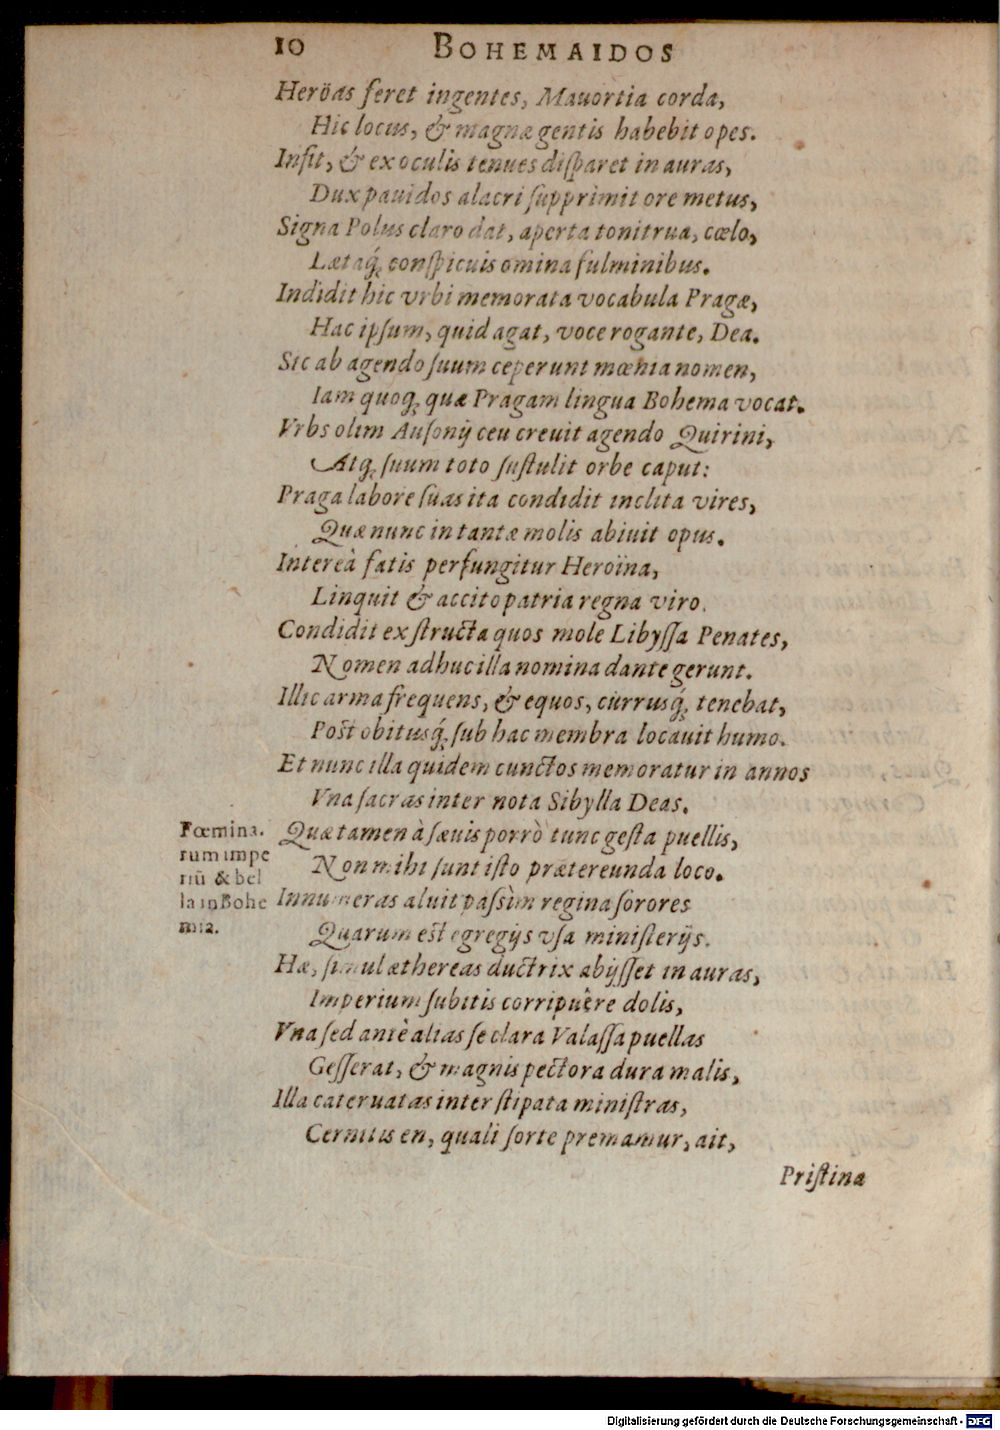 10 BOHEMAIDOS
Heröas feret ingentes, Mauortia corda,
Hic locus, & magnæ gentis habebit opes.
Infit, & ex oculis tenues disparet in auras,
Dux pauidos alacri supprimit ore metus,
Signa Polus claro dat, aperta tonitrua, cœlo,
Lætaq́; conspicuis omina fulminibus.
Indidit hic vrbi memorata vocabula Pragæ,
Hac ipsum, quid agat, voce rogante, Dea.
Sic ab agendo suum ceperunt mœnia nomen,
Iam quoq; quæ Pragam lingua Bohema vocat.
Vrbs olim Ausonij ceu creuit agendo Quirini,
Atq; suum toto sustulit orbe caput:
Praga labore suas ita condidit inclita vires,
Quæ nunc in tantæ molis abiuit opus.
Intereà fatis perfungitur Heroïna,
Linquit & accito patria regna viro.
Condidit exstructa quos mole Libyssa Penates,
Nomen adhuc illa nomina dante gerunt.
Illic arma frequens, & equos, currusq́; tenebat,
Post obitusq́; sub hac membra locauit humo.
Et nunc illa quidem cunctos memoratur in annos
Vna sacras inter nota Sibylla Deas.
Fœmina.
rum impe
riū & bel
la in Bohe
mia.
Quæ tamen à sæuis porrò tunc gesta puellis,
Non mihi sunt isto prætereunda loco.
Innumeras aluit passìm regina sorores
Quarum est egregijs vsa ministerijs.
Hæ, simul æthereas ductrix abijsset in auras,
Imperium subitis corripuêre dolis,
Vna sed antè alias se clara Valassa puellas
Gesserat, & magnis pectora dura malis,
Illa cateruatas inter stipata ministras,
Cernitis en, quali sorte premamur, ait,
Pristina
Digitalisierung gefördert durch die Deutsche Forschungsgemeinschaft - DFG